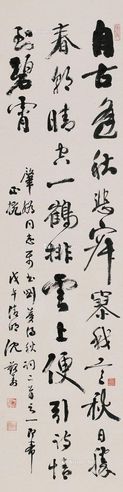 自古逢秋悲寂寥我言秋日勝
春朝晴空一鶴排雲上便引詩情
到碧霄
同志 書劉夢得秋詞二首之一即希
正腕
戊午清明沈